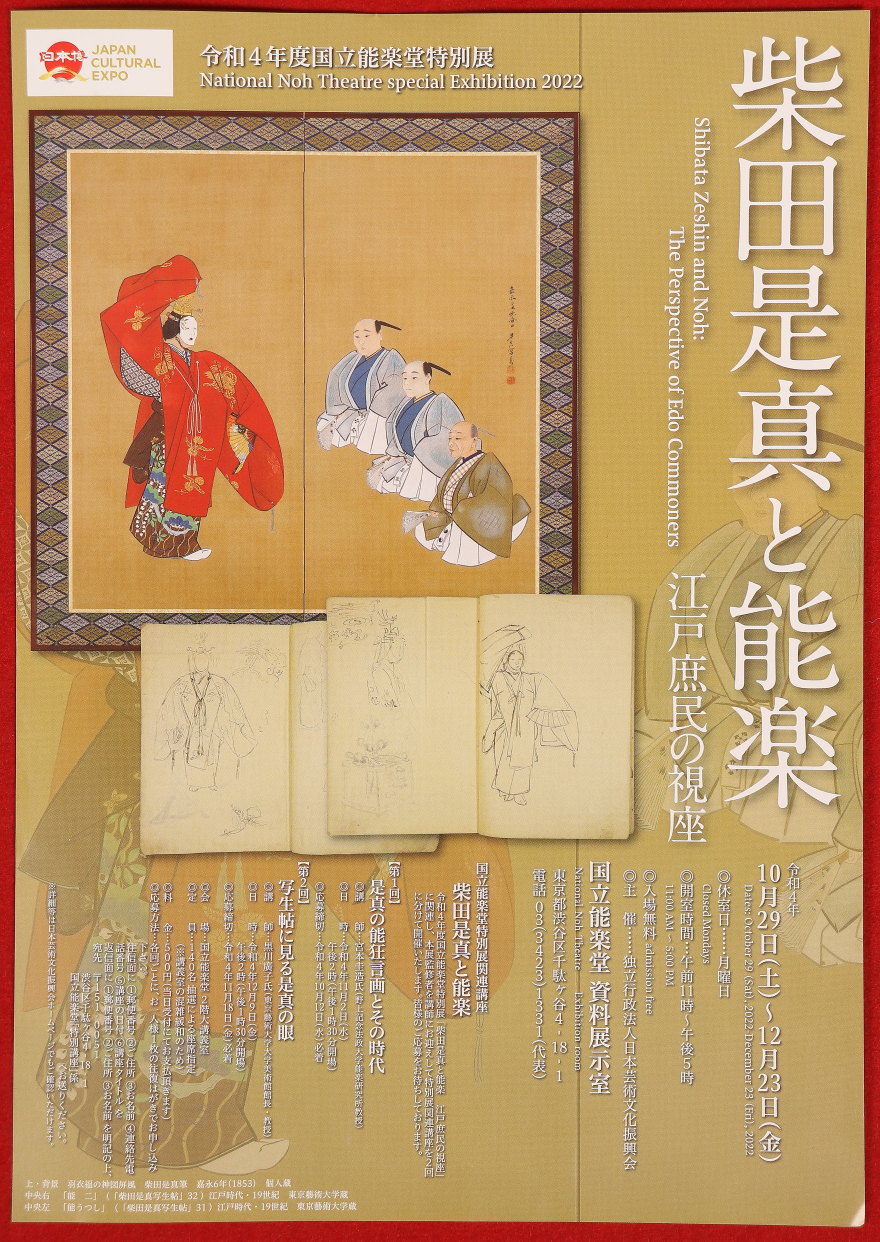 日本博
JAPAN
CULTURAL
EXPO
令和4年度国立能楽堂特別展
National Noh Theatre special Exhibition 2022
柴田是真と能楽
Shibata Zeshin and Noh:
The Perspective of Edo Commoners
江戸庶民の視座
令和4年
10月29日(土)~12月23日(金)
Dates: October 29 (Sat), 2022 December 23 (Fri), 2022
◎休室日……月曜日
Closed Mondays
◎開室時間…午前11時~午後5時
11:00 AM ~ 5:00 PM
◎入場無料 admission free
◎主 催……独立行政法人日本芸術文化振興会
国立能楽堂 資料展示室
National Noh Theatre Exhibition room
東京都渋谷区千駄ヶ谷4-18-1
電話 03(3423)1331(代表)
国立能楽堂特別展関連講座
柴田是真と能楽
令和4年度国立能楽堂特別展「柴田是真と能楽 江戸庶民の視座」
に関連し、本展監修者を講師にお迎えして特別展関連講座を2回
に分けて開催いたします。皆様のご応募をお待ちしております。
【第1回】
是真の能狂言画とその時代
◎講 師:宮本圭造氏(野上記念法政大学能楽研究所教授)
◎日 時:令和4年11月2日(水)
午後2時(午後1時30分開場)
◎応募締切:令和4年10月12日(水)必着
【第2回】
写生帖に見る是真の眼
◎講 師:黒川廣子氏(東京藝術大学大学美術館館長・教授)
◎日 時:令和4年12月9日(金)
午後2時(午後1時30分開場)
◎応募締切:令和4年11月18日(金)必着
◎会 場:国立能楽堂 2階大講義室
◎定 員:140名 抽選による座席指定
(受講整理の混雑緩和のため)
◎料 金:500円(当日受付にてお支払頂きます)
◎応募方法:各回ごとに、お一人様1枚の往復はがきでお申し込み
下さい。
往信面に①郵便番号②ご住所③お名前④連絡先電
話番号⑤講座の日付⑥講座タイトルを
返信面に①郵便番号②ご住所③お名前を明記の上、
宛先 〒151-0051
渋谷区千駄ヶ谷4-18-1
国立能楽堂「特別講座」係 へお送りください。
※詳細等は日本芸術文化振興会ホームページでもご確認いただけます。
上・背景 羽衣福の神図屏風 柴田是真筆 嘉永6年(1853) 個人蔵
中央右 「能 二」(「柴田是真写生帖」32)江戸時代・19世紀 東京藝術大学蔵
中央左 「能うつし」(「柴田是真写生帖」31)江戸時代・19世紀 東京藝術大学蔵